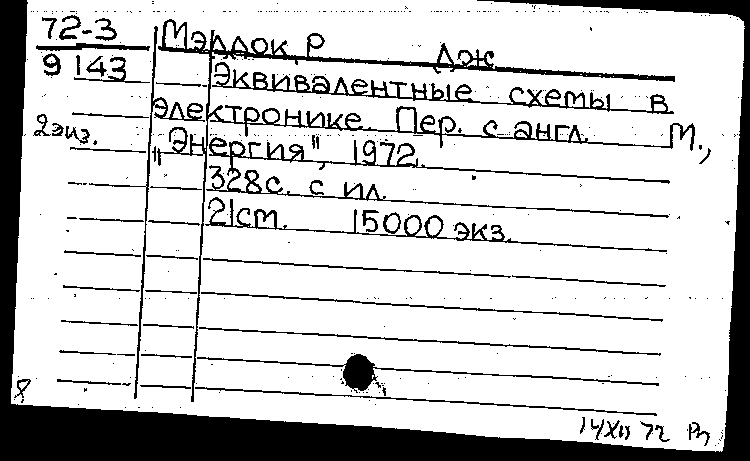 72-3 Мэрдок, Р Дж
9 143 Эквивалентные схемы в
электронике. Пер. с англ. М.,
2 экз. "Энергия", 1972.
328с. с ил.
21см. 15000 экз.
8
14 XII 72